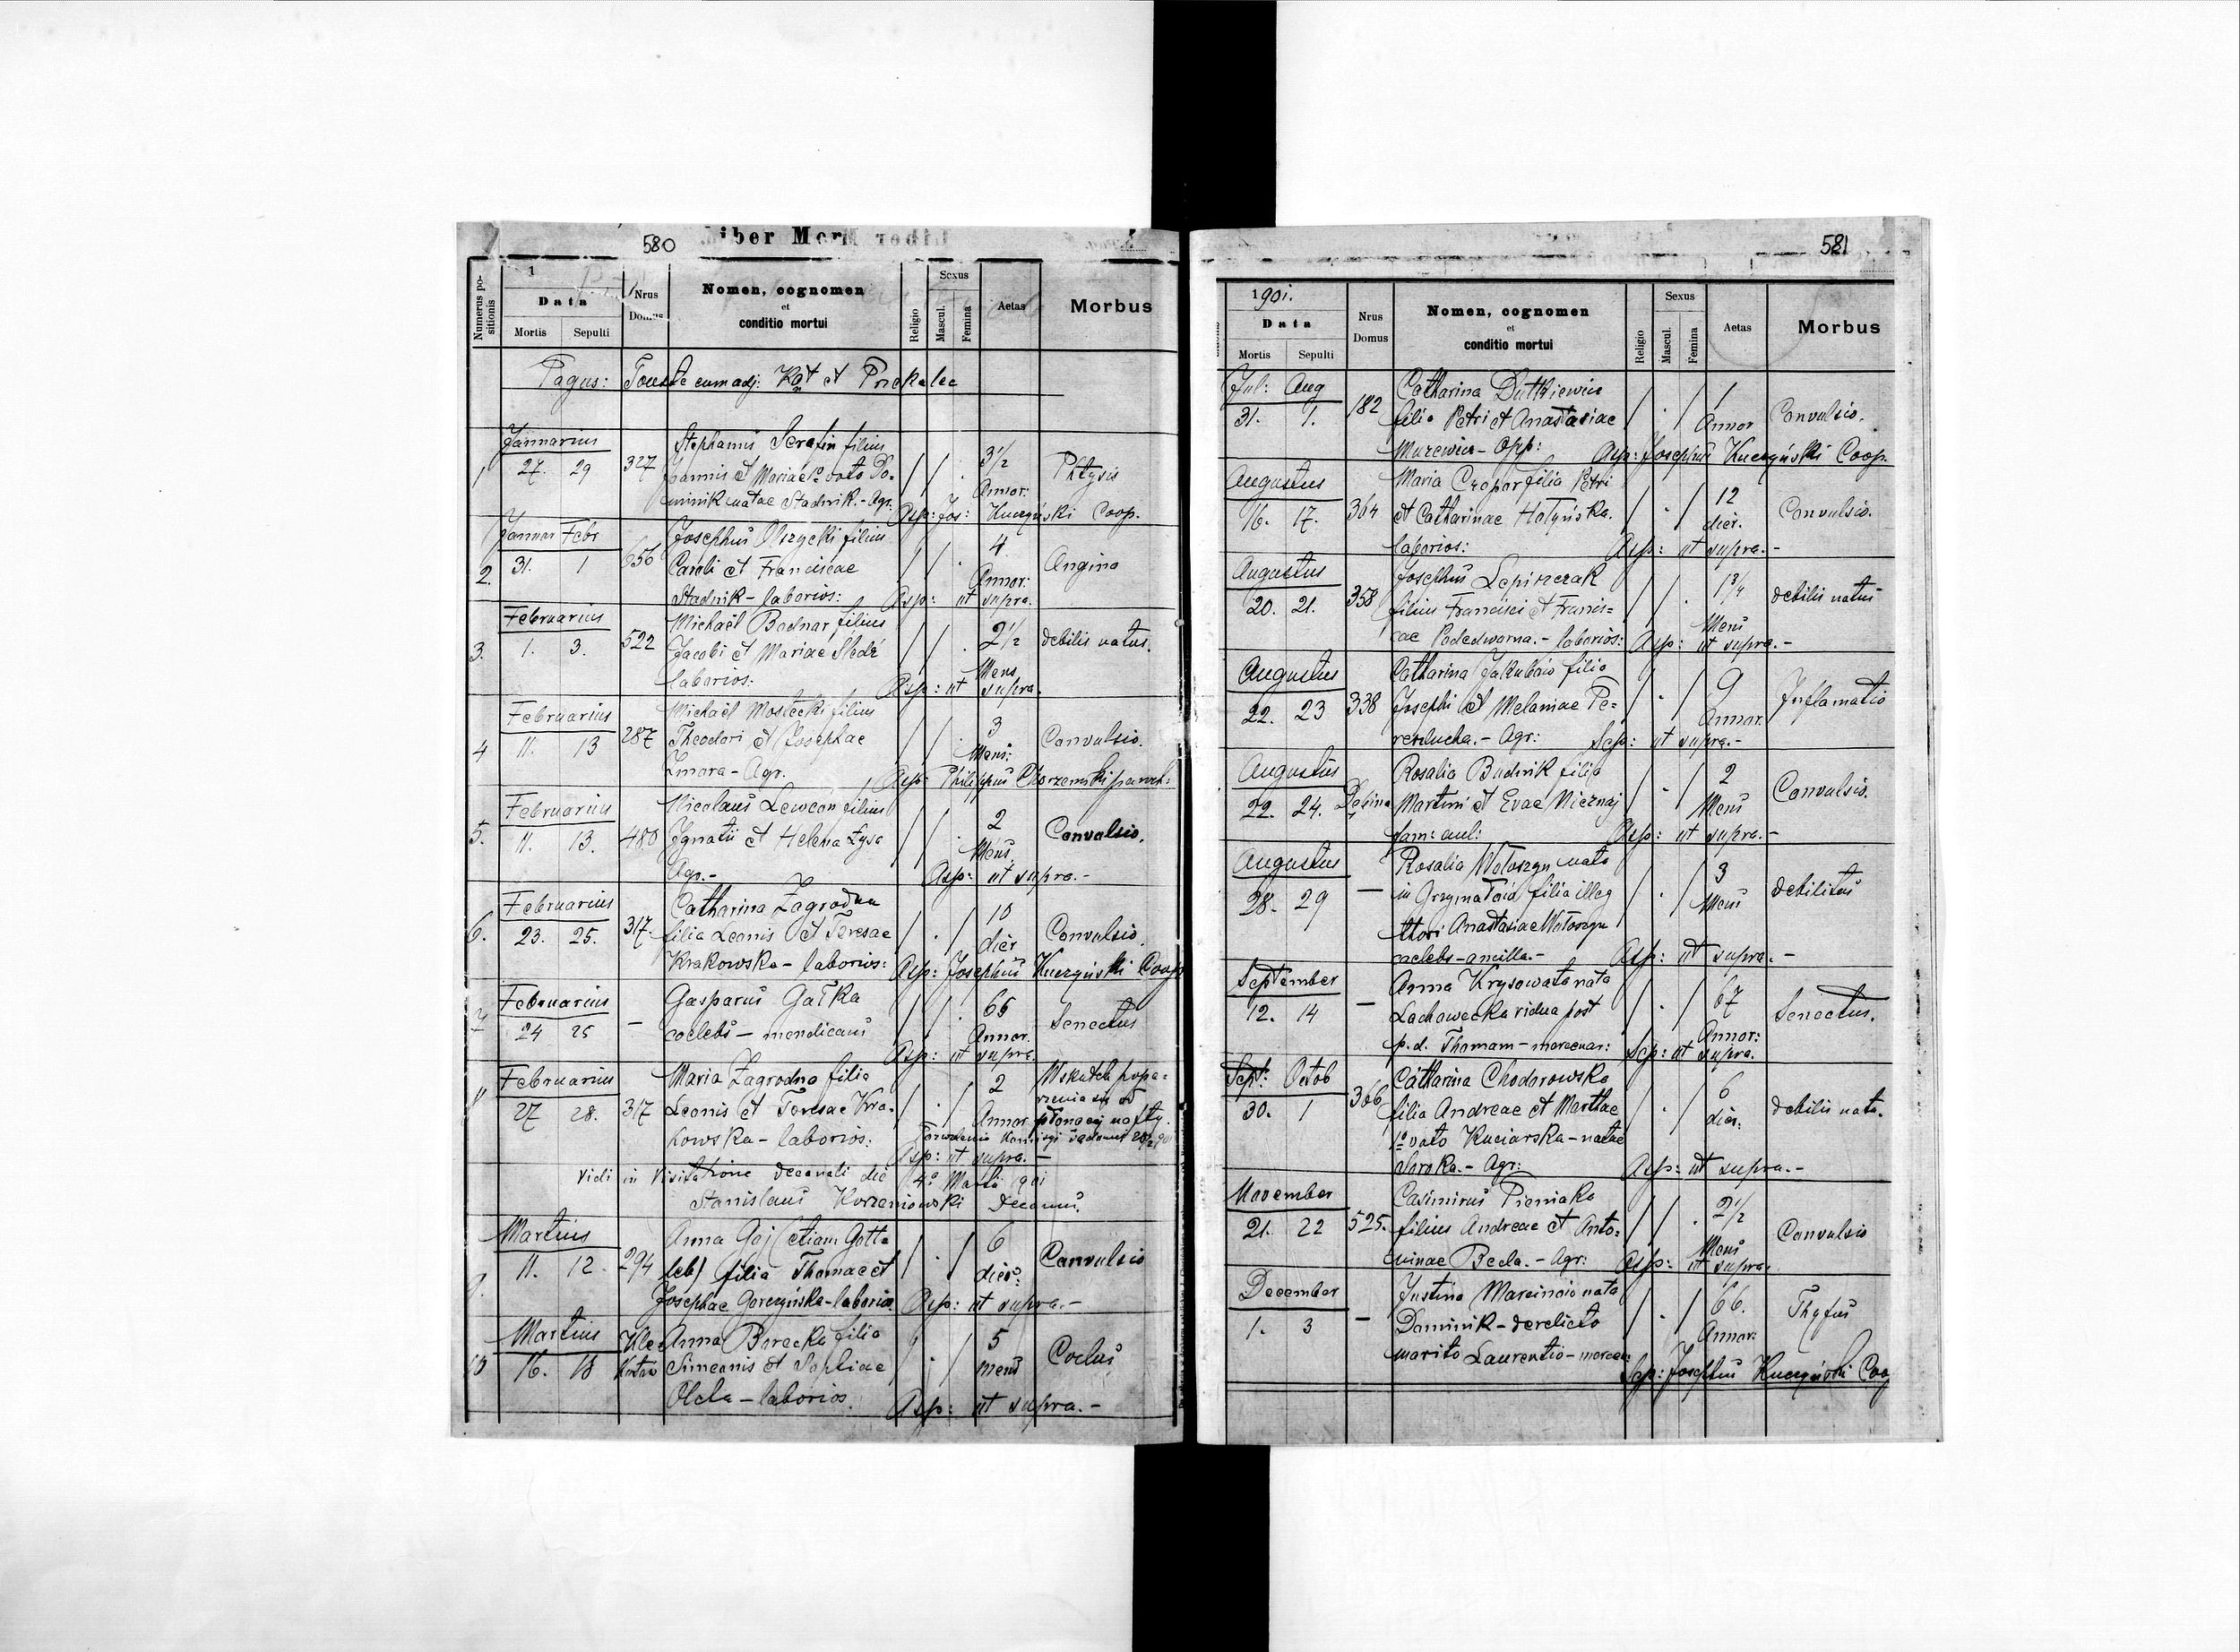 580
Liber Mor
1
Numerus positionis
Data
Mortis Sepulti
Nrus Domus
Nomen, cognomen
et
conditio mortui
Religio
Sexus
Mascul.
Femina
Aetas
Morbus
Pagus: Touste cum adj: Kąt et Prekalec
1
Januarius
27. 29
327
Stephanus Serafin filius
Joannis et Mariae 1º voto Do-
minik natae Stadnik.- Agr.
3½
Annor:
Phtysis
Asp: Jos: Kuczyński Coop.
2.
Januar Febr
31. 1
656
Josephus Olszycki filius
Caroli et Franciscae
Stadnik - laborios:
4
Annor:
Angina
Asp: ut supra.
3.
Februarius
1. 3.
522
Michaël Bodnar filius
Jacobi et Mariae Śledź
laborios:
2½
Mens
debilis natus.
Asp: ut supra.
4
Februarius
11. 13
287
Michaël Mostecki filius
Theodori et Josephae
Zmora - Agr.
3
Mens:
Convulsio.
Asp: Philippus Chorzemski paroch:
5.
Februarius
11. 13.
480
Nicolaus Lewcon filius
Ignatii et Helena Łysa
Agr.-
2
Mens.
Convulsio.
Asp: ut supra.-
6.
Februarius
23. 25.
317.
Catharina Zagrodna
filia Leonis et Teresae
Krakowska - laborios:
10
dier
Convulsio.
Asp: Josephus Kuczyński Coop
7
Februarius
24 25
-
Gasparus Gałka
coelebs - mendicans
65
Annor.
Senectus
Asp: ut supra.
Februarius
27 28.
317
Maria Zagrodna filia
Leonis et Teresae Kra-
kowska - laborios:
2
Annor.
Wskutek popa-
rzenia się od
płonącej nafty.
Asp: ut supra.-
Vidi in Visitatione decanali die 4º Martii 901
Stanislaus Korzeniowski Decanus.
9.
Martius
11. 12.
294
Anna Goj (etiam Gott-
leb) filia Thomae et
Josephae Gorczyńska - laborios.
6
dier:
Convulsio
Asp: ut supra.-
10
Martius
16. 18
Anna Borecka filia
Simeonis et Sophiae
Olcha - laborios.
5
mens
Asp: ut supra.-
581
1901.
Data
Mortis Sepulti
Nrus Domus
Nomen, cognomen
et
conditio mortui
Religio
Sexus
Mascul.
Femina
Aetas
Morbus
Jul: Aug
31. 1.
182
Catharina Dutkiewicz
filia Petri et Anastasiae
Mazewicz - Opp:
1
Annor
Convulsio.
Asp: Josephus Kuczyński Coop.
Augustus
16. 17.
364
Maria Czopor filia Petri
et Catharinae Hołyńska.
laborios:
12
dier.
Convulsio.
Asp: ut supra.-
Augustus
20. 21.
358
Josephus Lepiszczak
filius Francisci et Francis-
cae Podedworna.- laborios:
1¾
Mens
debilis natus
Asp: ut supra.-
Augustus
22. 23
338
Catharina Jakubaio filia
Josephi et Melaniae Pe-
resłucha.- Agr:
9
Annor.
Inflamatio
Sep: ut supra.-
Augustus
22. 24.
Dębina
Rosalia Budnik filia
Martini et Evae Niczaj
fam: aul:
2
Mens
Convulsio.
Asp: ut supra.-
Augustus
28. 29
-
Rosalia Wołoszyn nata
in Grzymałów filia illeg
thori Anastasiae Wołoszyn
caelebs - ancilla.-
3
Mens
debilitas
Asp: ut supra.-
September
12. 14
-
Anna Krysowata nata
Lachowecka vidua post
p.d. Thomam - mercenar:
67
Annor:
Senectus.
Sep: ut supra.
Sept: Octob
30. 1
366
Catharina Chodorowska
filia Andreae et Marthae
1º voto Kuciarska - natae
Soroka.- Agr:
6
dier:
debilis nata.
Asp: ut supra.-
November
21. 22
525.
Casimirus Pieniaka
filius Andreae et Anto-
ninae Becla.- Agr:
2½
Mens
Convulsio
Asp: ut supra.
December
1. 3
-
Justina Marciniow nata
Dominik - derelicta
marito Laurentio - mercen:
66.
Annor:
Thyfus
Sep: Josephus Kuczyński Coop